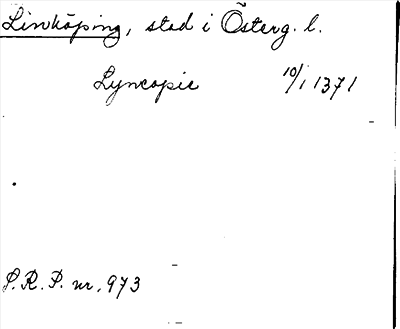 Linköping, stad i Österg. l.
Lyncopie 10/1 1371
S.R.P. nr. 973